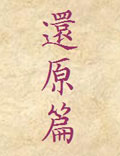 還原篇